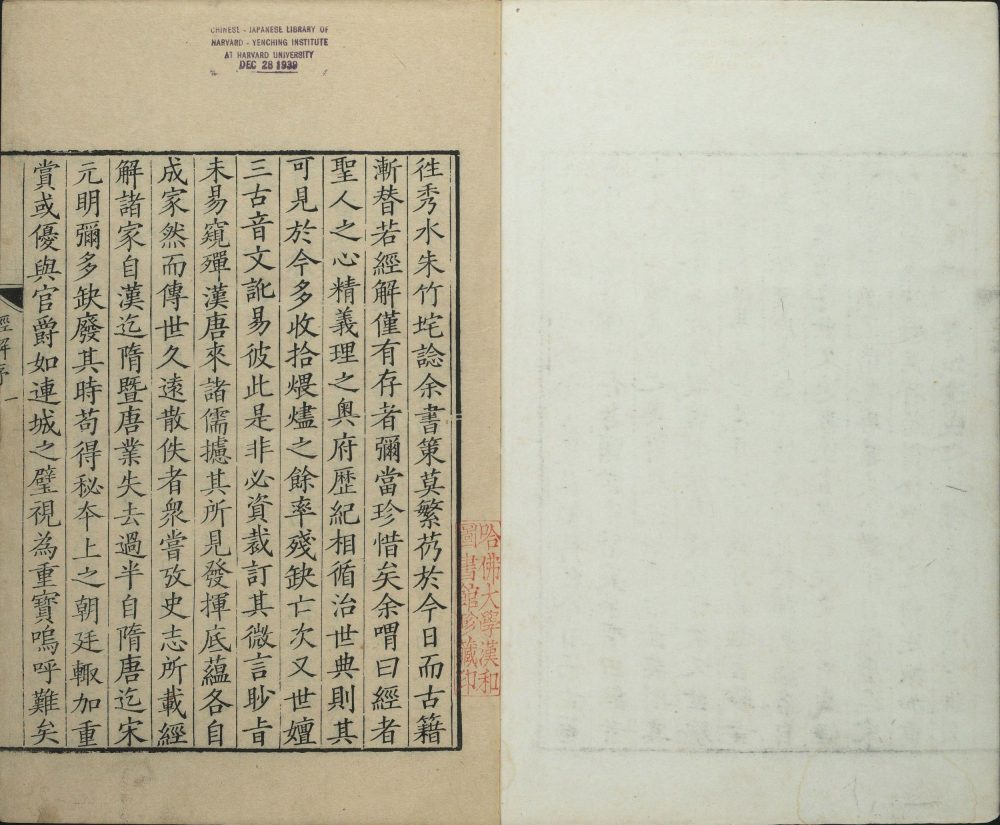 CHINESE - JAPANESE LIBRARY OF
HARVARD - YENCHING INSTITUTE
AT HARVARD UNIVERSITY
DEC 28 1939
哈佛大學漢和
圖書館珍藏印
徃秀水朱竹垞諗余書策莫繁扵於今日而古籍
漸替若經解僅有存者彌當珍惜矣余喟曰經者
聖人之心精義理之奧府歷紀相循治世典則其
可見於今多收拾煨燼之餘率殘缺亡次又世嬗
三古音文訛易彼此是非必資裁訂其微言眇旨
未易窺殫漢唐來諸儒攄其所見發揮底蘊各自
成家然而傳世久遠散佚者衆嘗攷史志所載經
解諸家自漢迄隋暨唐業失去過半自隋唐迄宋
元明彌多缺廢其時苟得秘夲上之朝廷輙加重
賞或優與官爵如連城之璧視為重寶嗚呼難矣
經解序
一